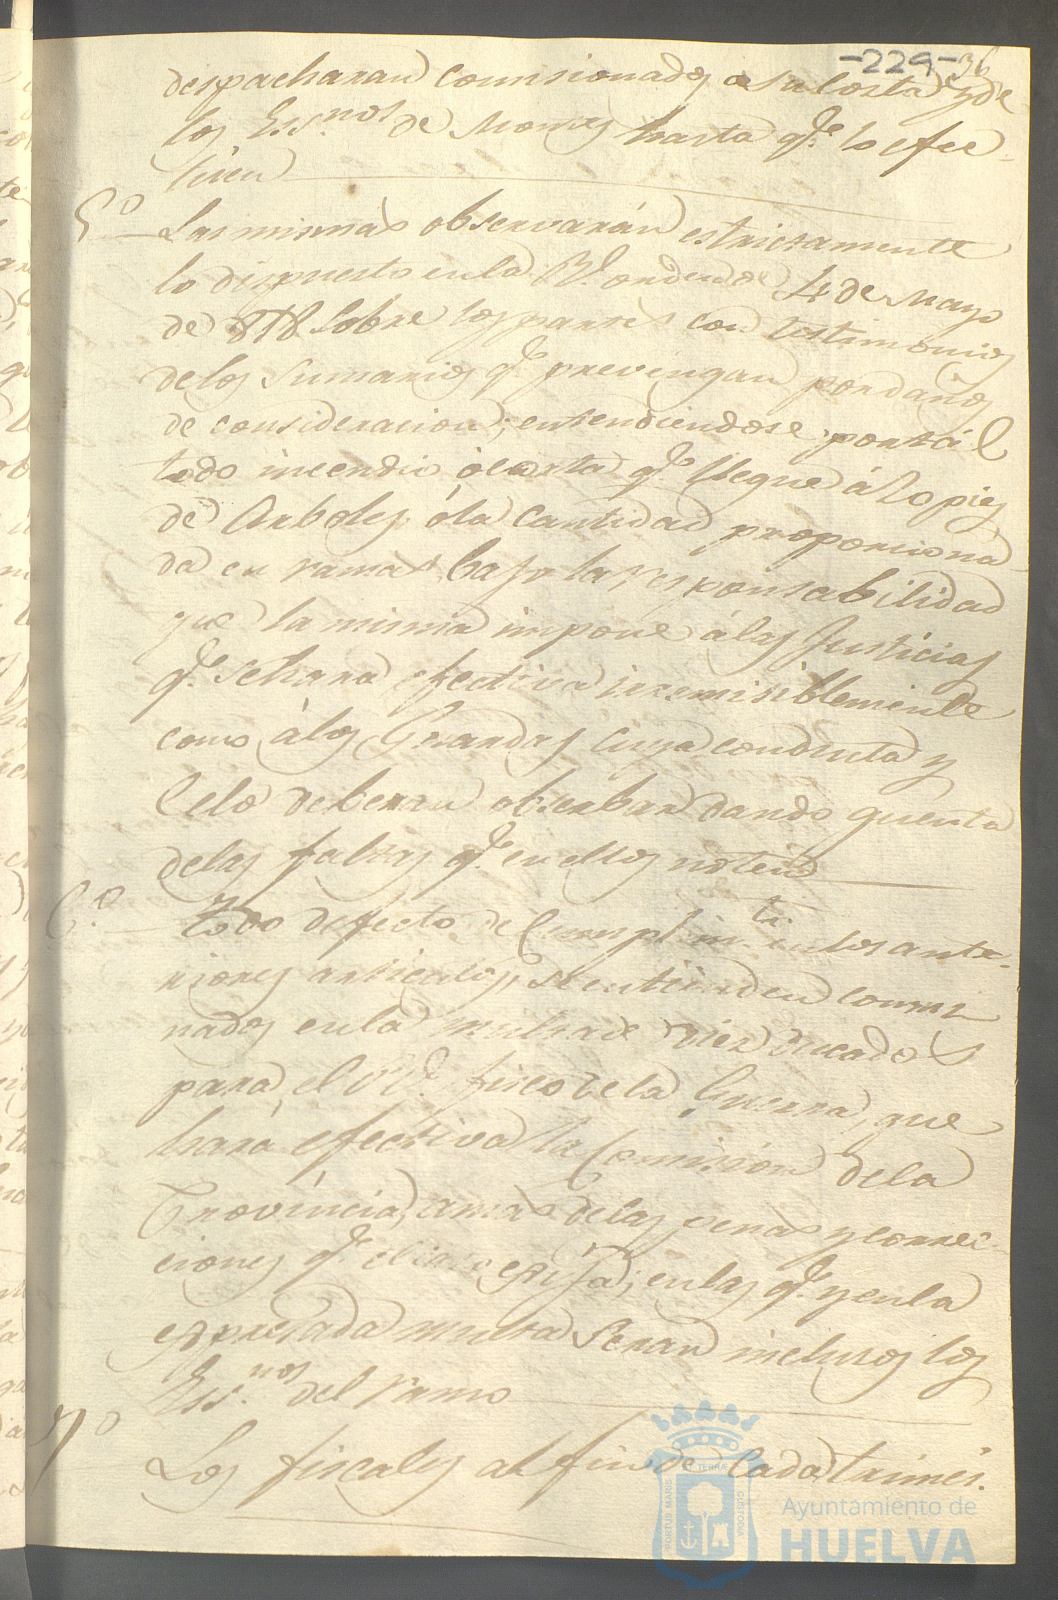 -229-36
despacharan comisionados a su costa y de
los Ess.nos de Montes hasta q.e lo efec-
túen
5.o Las mismas observarán estrictamente
lo dispuesto en la Rl. orden de 4 de Mayo
de 818 sobre los partes con testimonios
de los sumarios q.e prevengan por daños
de consideracion, entendiendose por tál
todo incendio ó corta q.e llegue á 20 pies
de Arboles, ó la cantidad proporciona-
da en ramas bajo la responsabilidad
que la misma impone á las Justicias
q.e se hará efectiva irremisiblemente
como á los Guardas cuya conducta y
Celo deberan obserbar dando quenta
de las faltas q.e en ellos noten
6.o Todo defecto de Cumplim.to en los ante-
riores articulos, se entienden conmi
nados en la multa de diez ducados
para el Rl. fisco de la Guerra, que
hará efectiva la Comision de la
Provincia, amas de las penas y correc-
ciones q.e el caso exija; en las q.e y en la
expresada multa seran inclusos los
Ess.nos del ramo
7.o Los fiscales al fin de cada trimes.
PORTUS MARIS
TERRAE
CUSTODIA
Ayuntamiento de
HUELVA